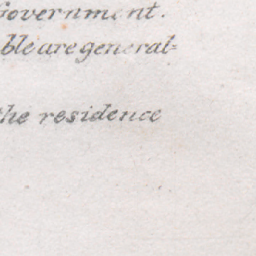 Government.
ble are general-
the residence